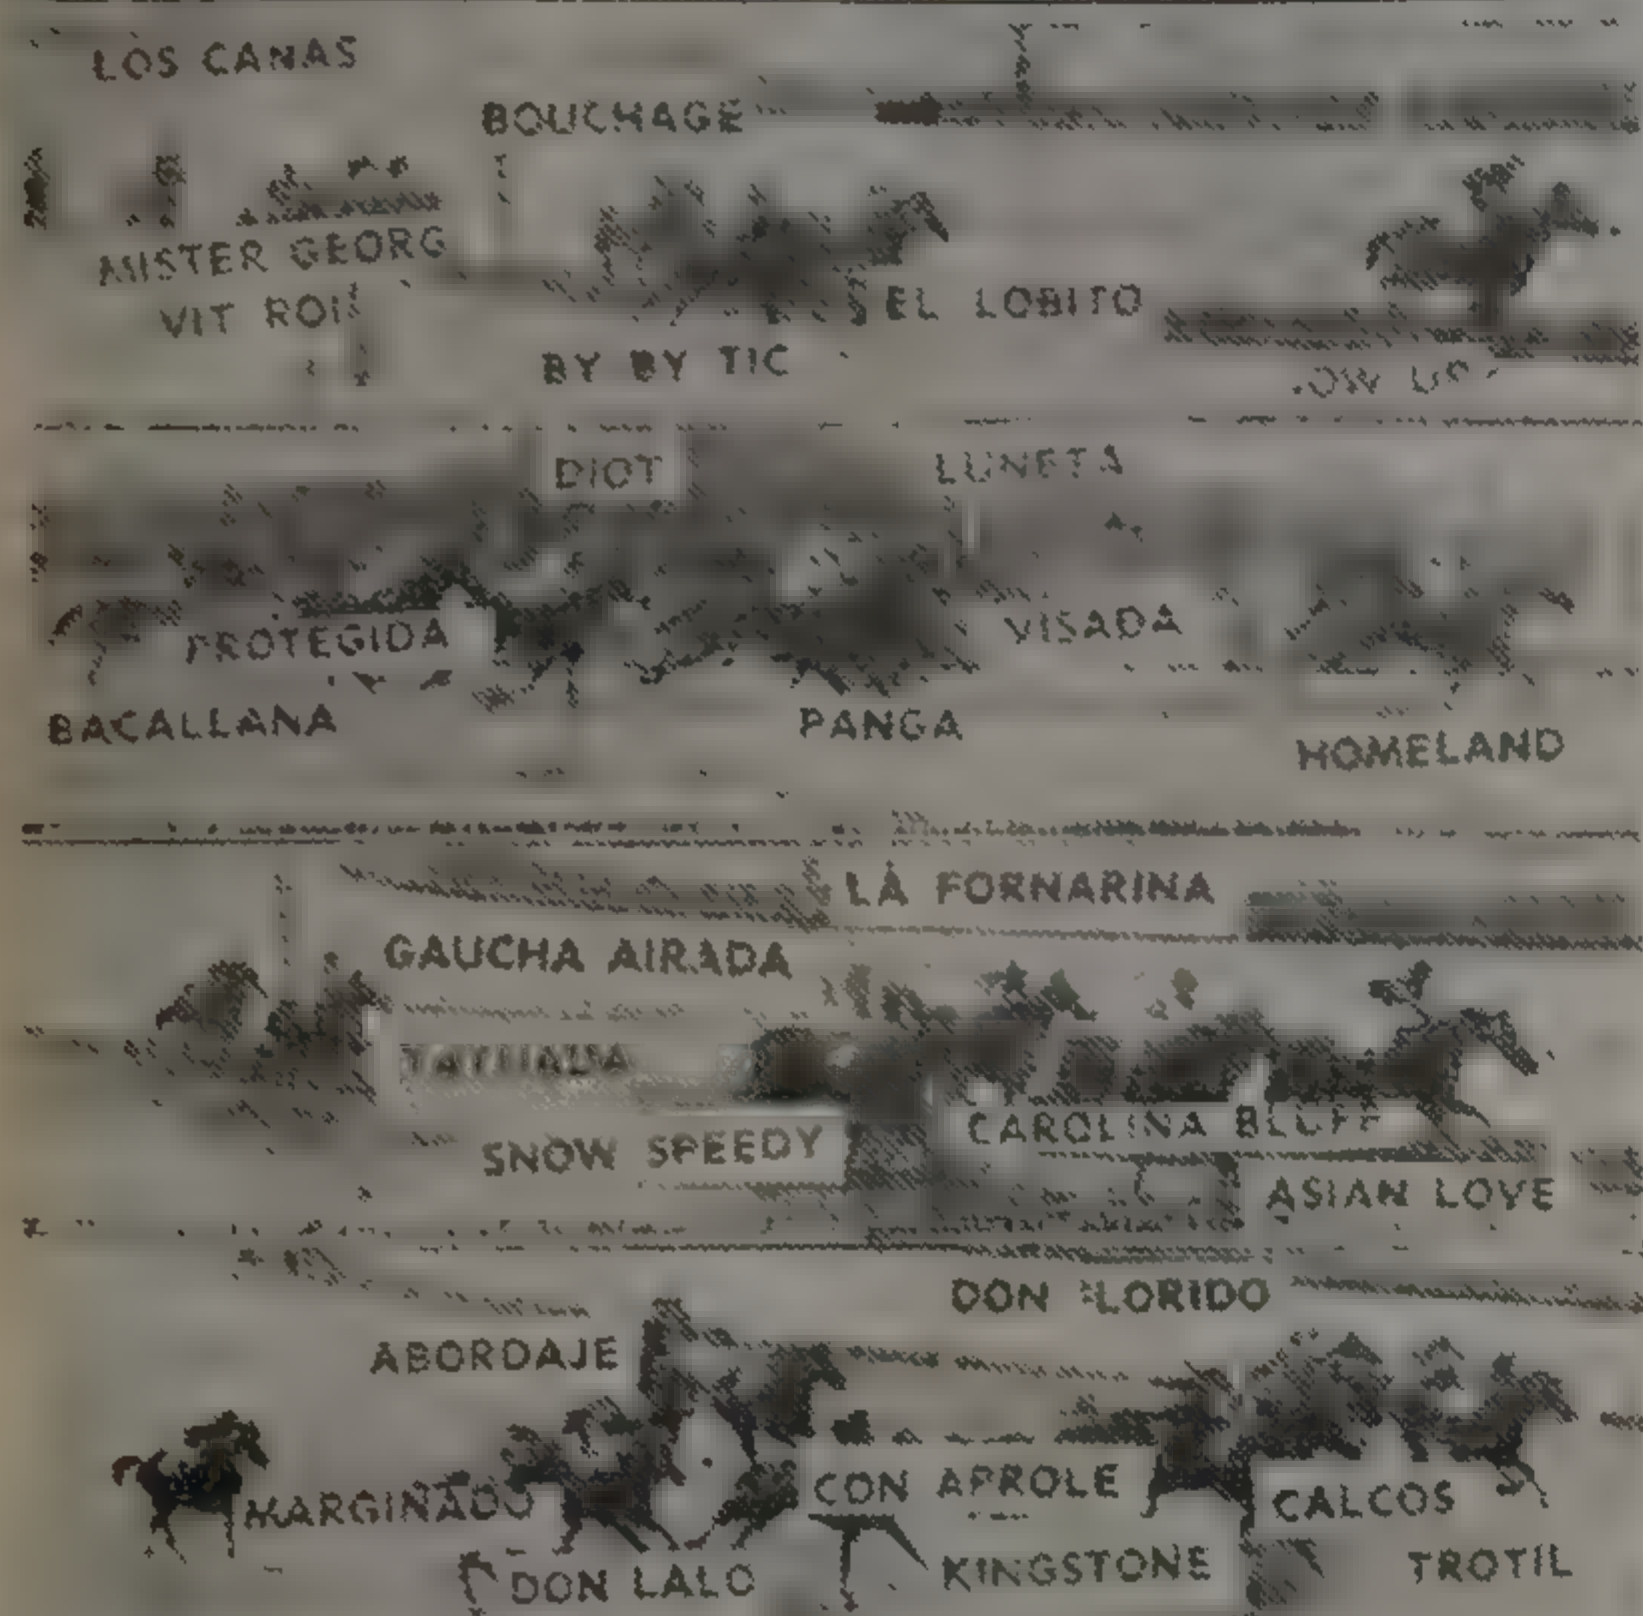 LOS CANAS
BOUCHAGE
MISTER GEORG
VIT ROI
EL LOBITO
BY BY TIC
DIOT
LUNETA
PROTEGIDA
VISADA
BACALLANA
PANGA
HOMELAND
LA FORNARINA
GAUCHA AIRADA
SNOW SPEEDY
CAROLINA BLUFF
ASIAN LOVE
DON
ABORDAJE
MARGINADO
CON APROLE
CALCOS
DON LALO
KINGSTONE
TROTIL